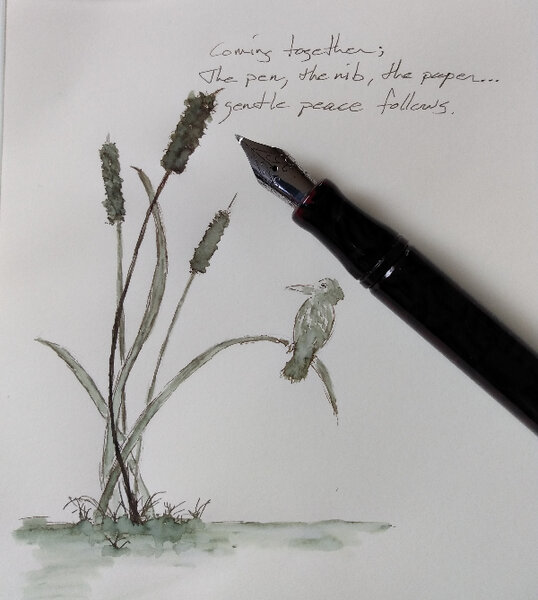 Coming together;
The pen, the nib, the paper...
gentle peace follows.